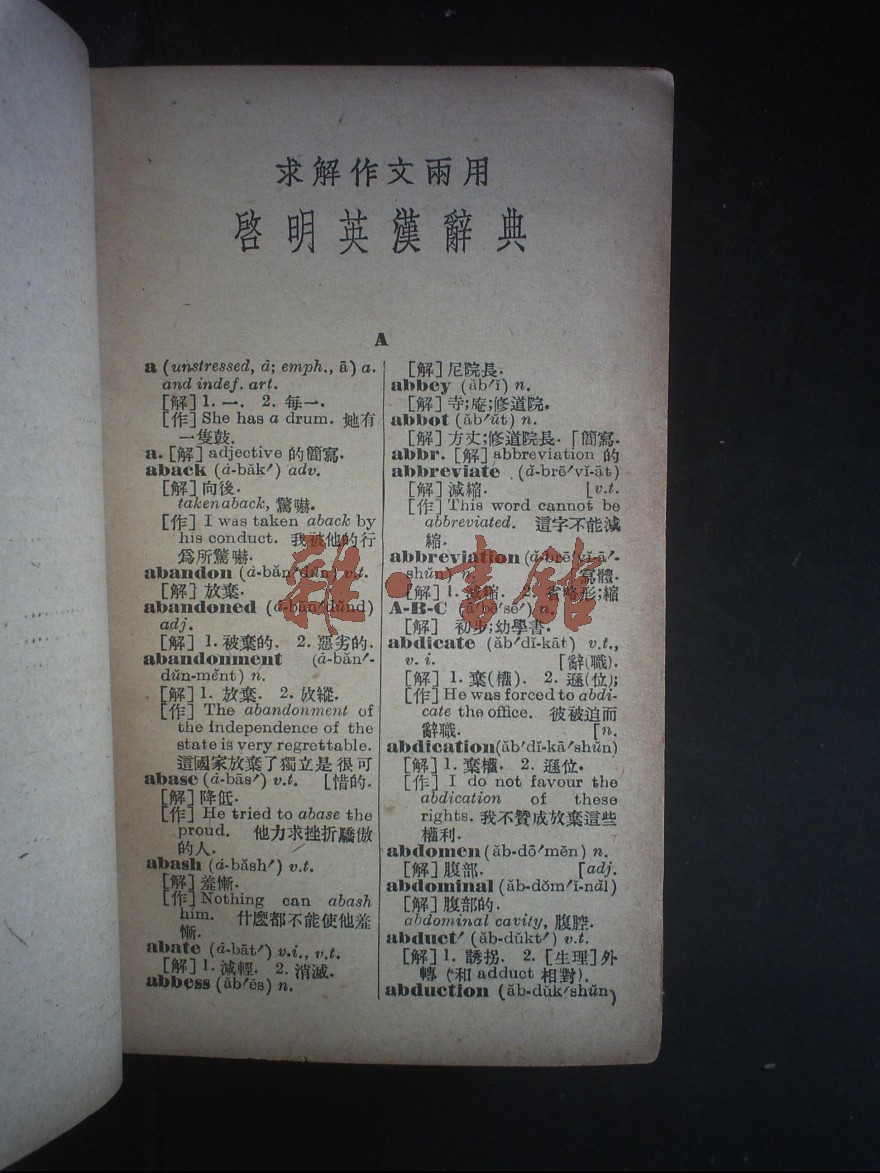 求解作文兩用
啓明英漢辭典
A
a (unstressed, ȧ; emph., ā) a.
and indef. art.
[解] 1. 一. 2. 每一.
[作] She has a drum. 她有
一隻鼓.
a. [解] adjective 的簡寫.
aback (ȧ-băk′) adv.
[解] 向後.
taken aback, 驚嚇.
[作] I was taken aback by
his conduct. 我被他的行
爲所驚嚇.
abandon (ȧ-băn′dŭn) v.t.
[解] 放棄.
abandoned (ȧ-băn′dŭnd)
adj.
[解] 1. 被棄的. 2. 惡劣的.
abandonment (ȧ-băn′-
dŭn-mĕnt) n.
[解] 1. 放棄. 2. 放縱.
[作] The abandonment of
the independence of the
state is very regrettable.
這國家放棄了獨立是很可
abase (ȧ-bās′) v.t. [惜的.
[解] 降低.
[作] He tried to abase the
proud. 他力求挫折驕傲
的人.
abash (ȧ-băsh′) v.t.
[解] 羞慚.
[作] Nothing can abash
him. 什麼都不能使他羞
慚.
abate (ȧ-bāt′) v.i., v.t.
[解] 1. 減輕. 2. 消滅.
abbess (ăb′ĕs) n.
[解] 尼院長.
abbey (ăb′ĭ) n.
[解] 寺;庵;修道院.
abbot (ăb′ŭt) n.
[解] 方丈;修道院長. [簡寫.
abbr. [解] abbreviation 的
abbreviate (ă-brē′vĭ-āt)
[解] 減縮. [v.t.
[作] This word cannot be
abbreviated. 這字不能減
縮.
abbreviation (ă-brē′vĭ-ā′-
shŭn) n. 寫體.
[解] 1. 減縮. 2. 省略形;縮
A-B-C (ā′bē′sē′) n.
[解] 初步;幼學書.
abdicate (ăb′dĭ-kāt) v.t.,
v. i. [辭(職).
[解] 1. 棄(權). 2. 遜(位);
[作] He was forced to abdi-
cate the office. 彼被迫而
辭職. [n.
abdication (ăb′dĭ-kā′shŭn)
[解] 1. 棄權. 2. 遜位.
[作] I do not favour the
abdication of these
rights. 我不贊成放棄這些
權利.
abdomen (ăb-dō′mĕn) n.
[解] 腹部. [adj.
abdominal (ăb-dŏm′ĭ-năl)
[解] 腹部的.
abdominal cavity, 腹腔.
abduct′ (ăb-dŭkt′) v.t.
[解] 1. 誘拐. 2. [生理] 外
轉 (和 adduct 相對).
abduction (ăb-dŭk′shŭn)
雜·書館